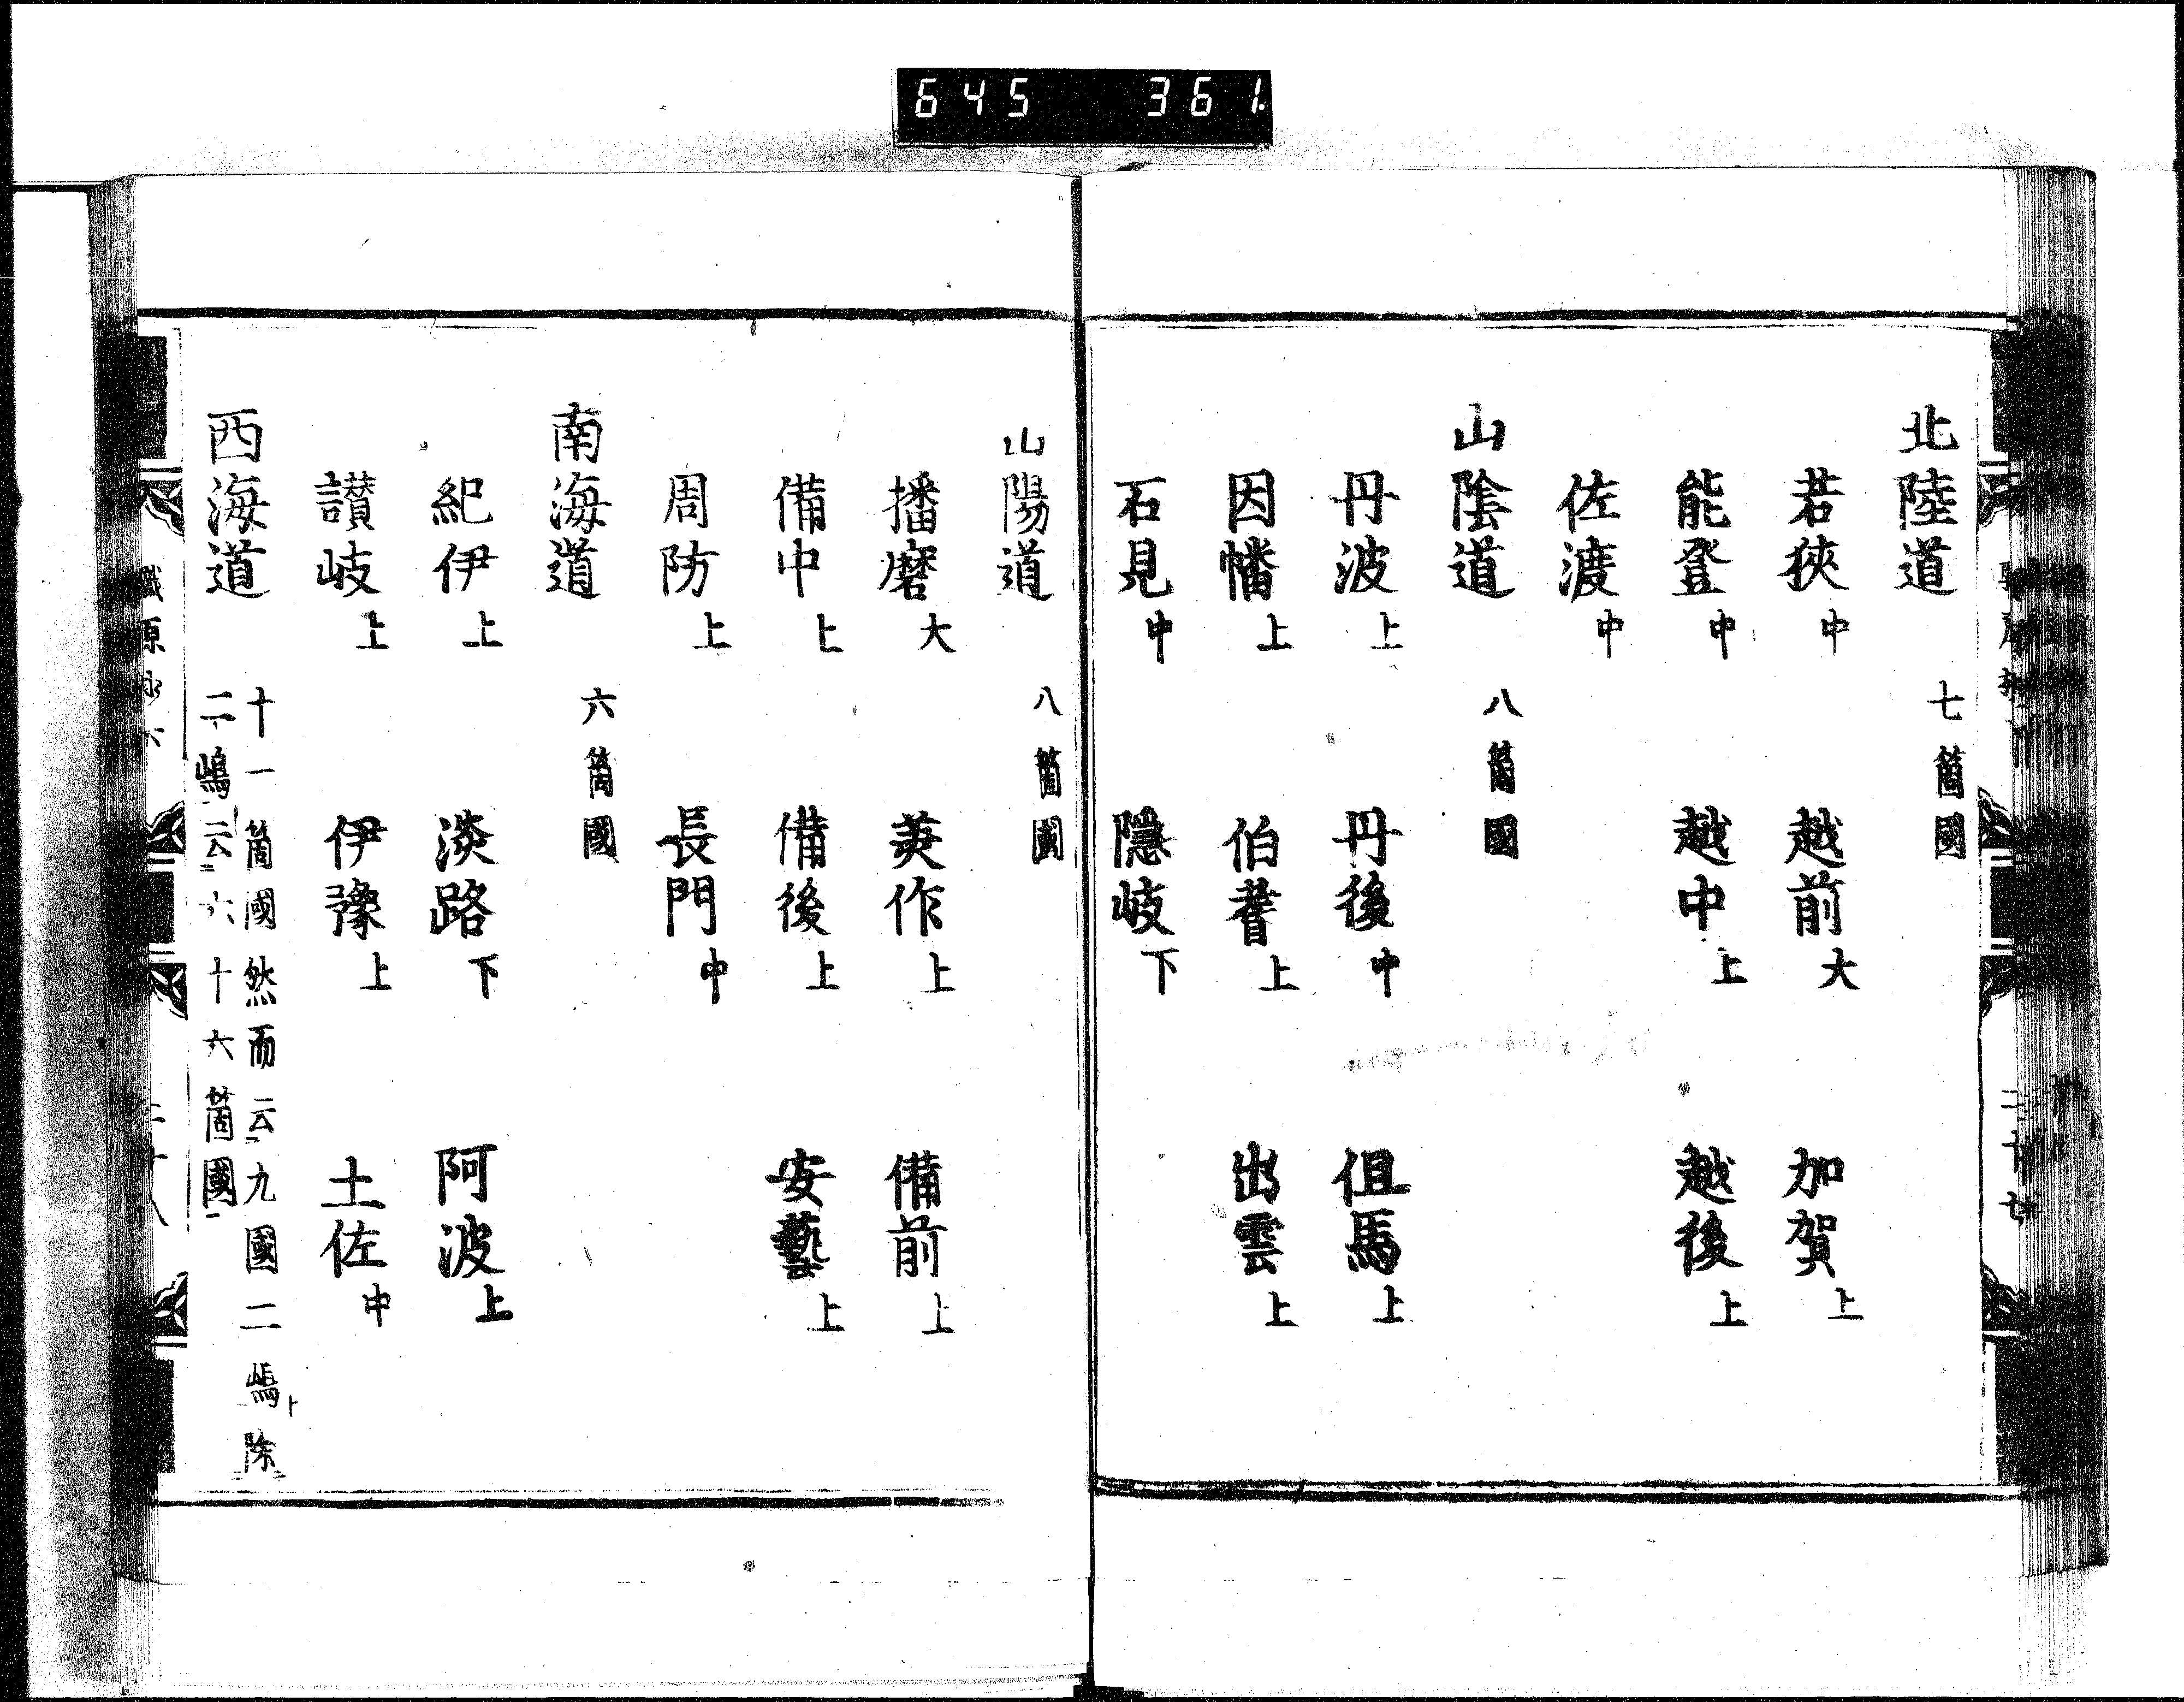 645 361
北陸道 七箇國
若狹中 越前大 加賀上
能登中 越中上 越後上
佐渡中
山陰道 八箇國
丹波上 丹後中 但馬上
因幡上 伯耆上 出雲上
石見中 隱岐下
山陽道 八箇國
播磨大 美作上 備前上
備中上 備後上 安藝上
周防上 長門中
南海道 六箇國
紀伊上 淡路下 阿波上
讃岐上 伊豫上 土佐中
西海道 十一箇國然而云九國二嶋除
二嶋云六十六箇國